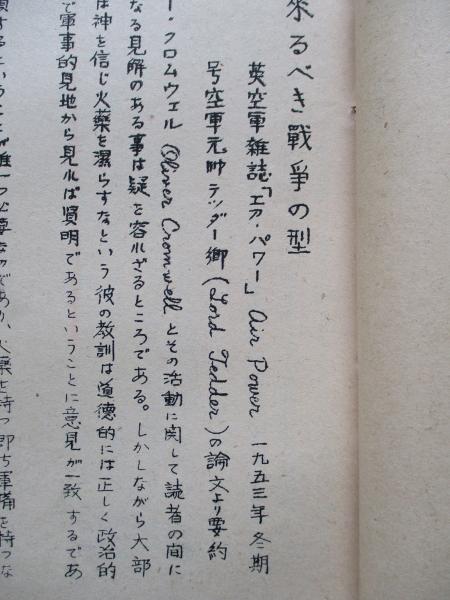 来るべき戰爭の型
英空軍雜誌「エア・パワー」Air Power 一九五三年冬期
号空軍元帥テッダー卿(Lord Tedder)の論文より要約
ー・クロムウェル Oliver Cromwell とその活動に関して読者の間に
なる見解のある事は疑を容れざるところである。しかしながら大部
は神を信じ火藥を濕らすなという彼の教訓は道德的には正しく政治的
で軍事的見地から見れば賢明であるということに意見が一致するであ
るということが唯一つ必要なのであり、火藥を持つ即ち軍備を持つな